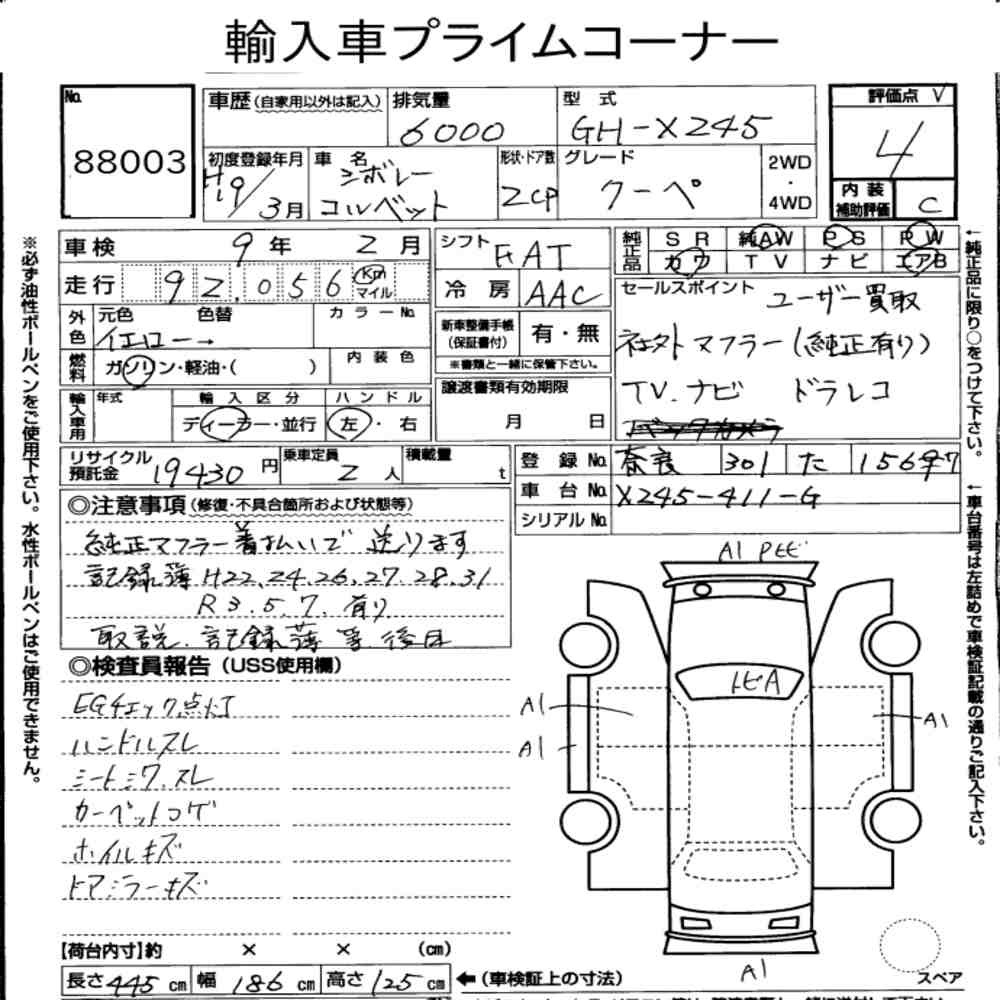 輸入車プライムコーナー
No. 88003
車歴(自家用以外は記入) 排気量 6000 型式 GH-X245 評価点 V 4
初度登録年月 H19/3月 車名 シボレー コルベット 形状・ドア数 2CP グレード クーペ 2WD・4WD 内装補助評価 C
車検 9年 2月 シフト FAT 純正品 SR 純AW PS PW
カワ TV ナビ エアB
走行 92,056 Km マイル 冷房 AAC
セールスポイント ユーザー買取
外色 元色 イエロー→ 色替 カラーNo. 新車整備手帳(保証書付) 有・無
社外マフラー(純正有り)
※書類と一緒に保管下さい。
燃料 ガソリン・軽油・( ) 内装色 譲渡書類有効期限 月 日
TV.ナビ ドラレコ
バックカメラ
輸入車用 年式 輸入区分 ディーラー・並行 ハンドル 左・右
リサイクル預託金 19430円 乗車定員 2人 積載量 t 登録No. 奈良 301 た
車台No. X245-411-G
シリアルNo.
◎注意事項(修復・不具合箇所および状態等)
純正マフラー着払いで送ります
記録簿 H22,24.26,27.28.31
R3.5.7.有り
取説.記録簿等.後日
◎検査員報告(USS使用欄)
EGチェック点灯
ハンドルスレ
シートシワ.スレ
カーペットコゲ
ホイルキズ
ドアミラーキズ
A1 トビ
トビA
A1
A1
A1
A1
スペア
【荷台内寸】約 × × (cm)
長さ 445 cm 幅 186 cm 高さ 125 cm ←(車検証上の寸法)
※必ず油性ボールペンをご使用下さい。水性ボールペンはご使用できません。
←純正品に限り○をつけて下さい。
←車台番号は左詰めで車検証記載の通りご記入下さい。